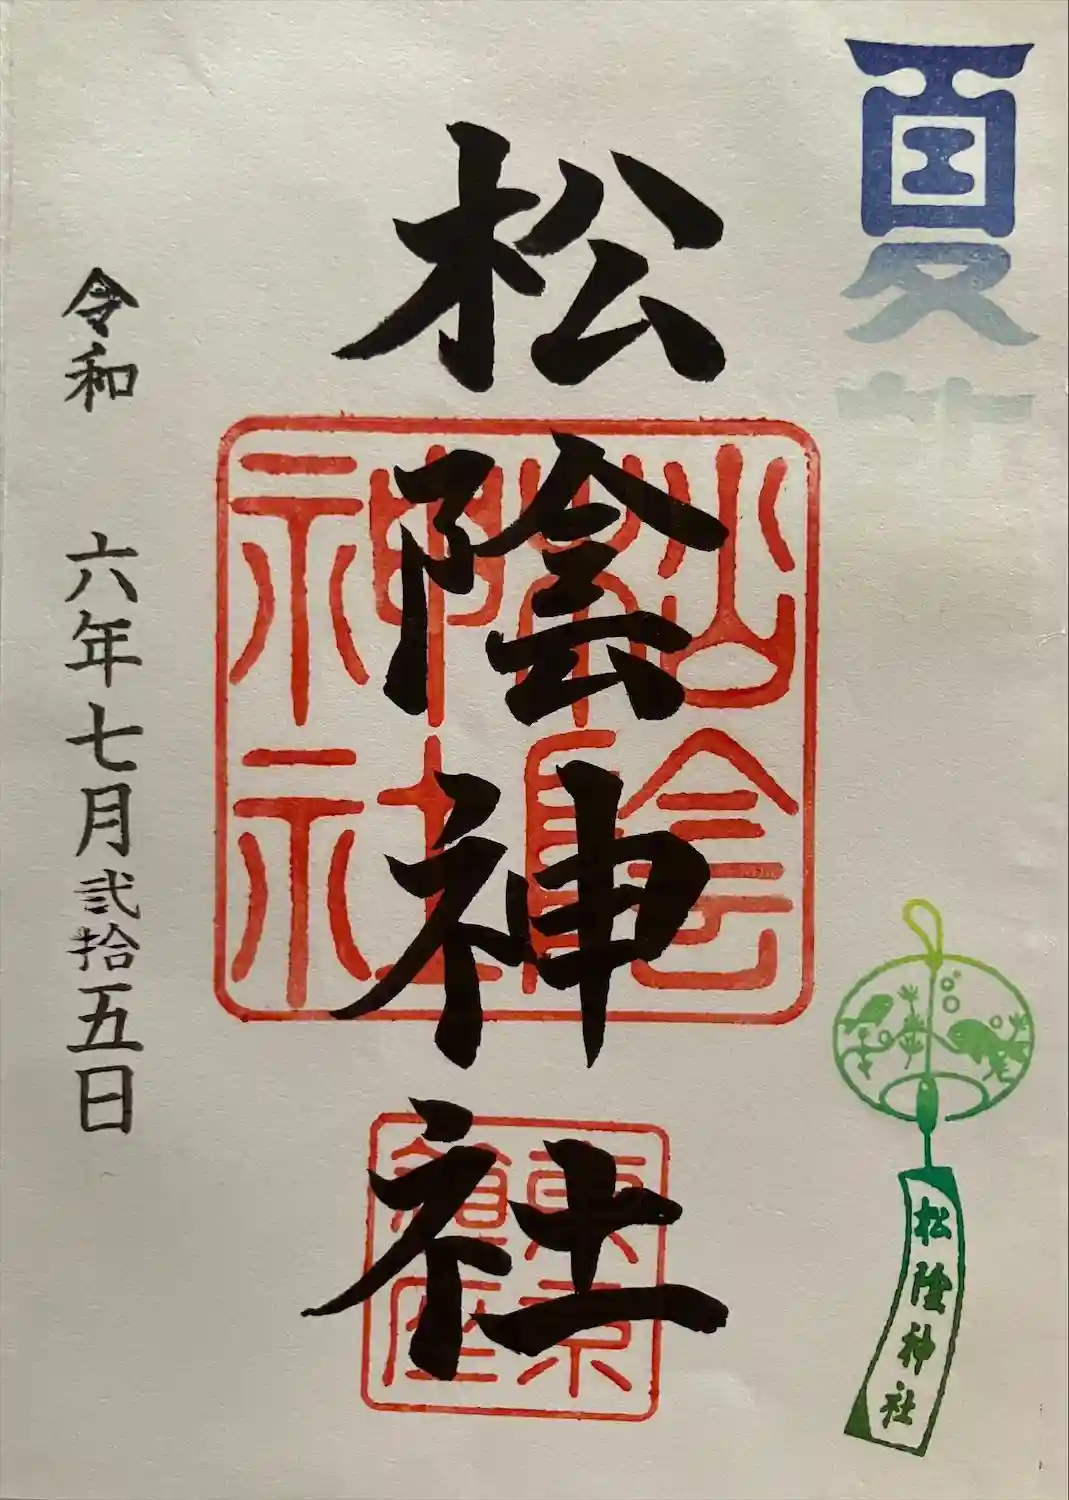 夏
松陰神社
松陰神社
松陰
神社
東京
鎮座
令和 六年七月弐拾五日